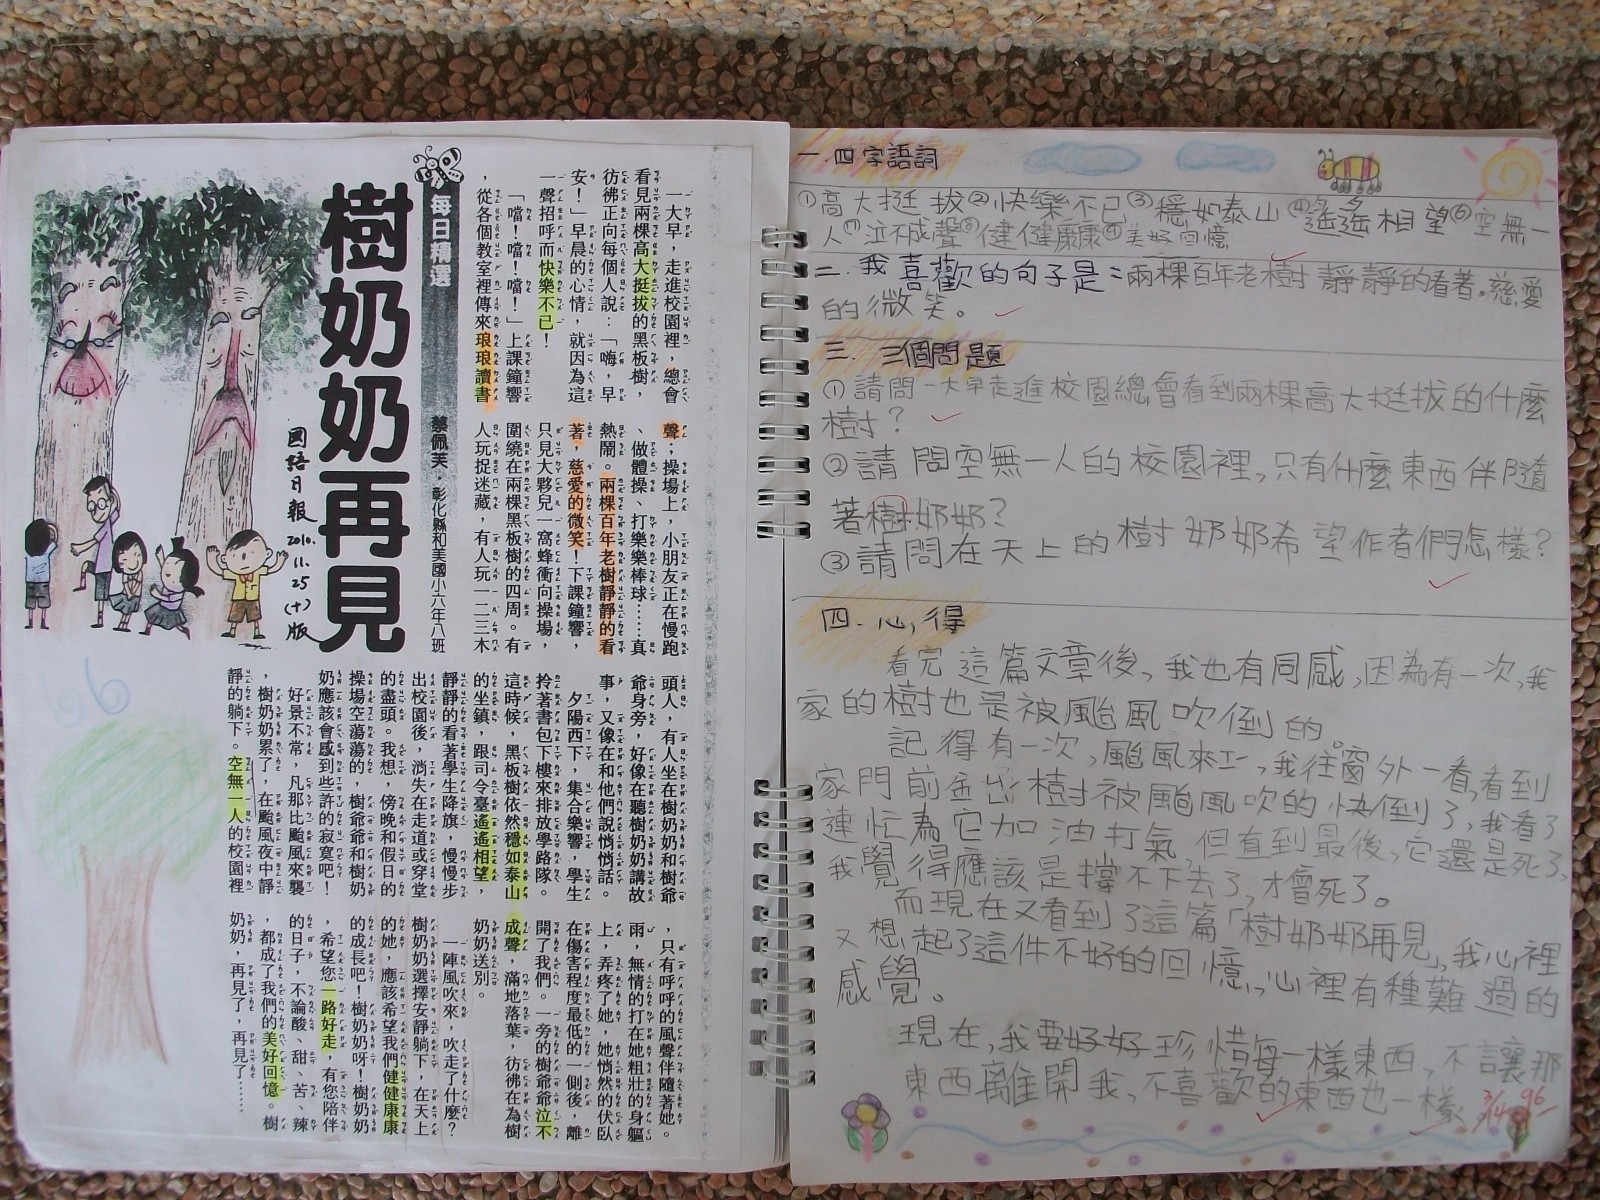 每日精選
樹奶奶再見
蔡佩芙．彰化縣和美國小六年八班
國語日報
2010.
11.25
(十)版
一大早，走進校園裡，總會
看見兩棵高大挺拔的黑板樹，
彷彿正向每個人說：「嗨，早
安！」早晨的心情，就因為這
一聲招呼而快樂不已！
「噹！噹！噹！」上課鐘響
，從各個教室裡傳來琅琅讀書
聲；操場上，小朋友正在慢跑
、做體操、打樂樂棒球……真
熱鬧。兩棵百年老樹靜靜的看
著，慈愛的微笑！下課鐘響，
只見大夥兒一窩蜂衝向操場，
圍繞在兩棵黑板樹的四周。有
人玩捉迷藏，有人玩一二三木
頭人，有人坐在樹奶奶和樹爺
爺身旁，好像在聽樹奶奶講故
事，又像在和他們說悄悄話。
夕陽西下，集合樂響，學生
拎著書包下樓來排放學路隊。
這時候，黑板樹依然穩如泰山
的坐鎮，跟司令臺遙遙相望，
靜靜的看著學生降旗，慢慢步
出校園後，消失在走道或穿堂
的盡頭。我想，傍晚和假日的
操場空蕩蕩的，樹爺爺和樹奶
奶應該會感到些許的寂寞吧！
好景不常，凡那比颱風來襲
，樹奶奶累了，在颱風夜中靜
靜的躺下。空無一人的校園裡
，只有呼呼的風聲伴隨著她。
雨，無情的打在她粗壯的身軀
上，弄疼了她，她悄然的伏臥
在傷害程度最低的一側後，離
開了我們。一旁的樹爺爺泣不
成聲，滿地落葉，彷彿在為樹
奶奶送別。
一陣風吹來，吹走了什麼？
樹奶奶選擇安靜躺下，在天上
的她，應該希望我們健健康康
的成長吧！樹奶奶呀！樹奶奶
，希望您一路好走，有您陪伴
的日子，不論酸、甜、苦、辣
，都成了我們的美好回憶。樹
奶奶，再見了，再見了……
一.四字語詞
①高大挺拔②快樂不已③穩如泰山④遙遙相望⑥空無一
人⑦泣不成聲⑧健健康康⑨美好回憶
二.我喜歡的句子是：兩棵百年老樹靜靜的看著。慈愛
的微笑。
三.三個問題
①請問一大早走進校園總會看到兩棵高大挺拔的什麼
樹？
②請問空無一人的校園裡，只有什麼東西伴隨
著樹奶奶？
③請問在天上的樹奶奶希望作者們怎樣？
四.心得
看完這篇文章後，我也有同感，因為有一次，我
家的樹也是被颱風吹倒的。
記得有一次，颱風來，我往窗外一看，看到
家門前樹被颱風吹的快倒了，我看了
連忙為它加油打氣，但直到最後，它還是死了，
我覺得應該是撐不下去了，才會死了。
而現在又看到了這篇「樹奶奶再見」，我心裡
又想起了這件不好的回憶，心裡有種難過的
感覺。
現在，我要好好珍惜每一樣東西，不讓那
東西離開我，不喜歡的東西也一樣。
3/14
96